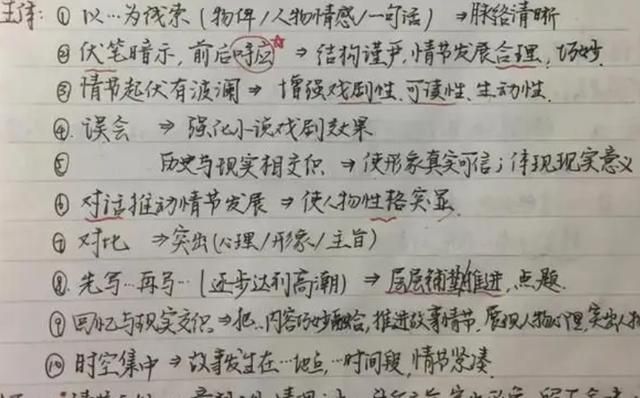 ①以…为线索(物件/人物情感/一句话)⇒脉络清晰
②伏笔暗示,前后呼应☆⇒结构谨严,情节发展合理,巧妙
③情节起伏有波澜⇒增强戏剧性、可读性、生动性.
④.误会 ⇒强化小说戏剧效果
⑤ 历史与现实相交织 ⇒使形象真实可信;体现现实意义
⑥对话推动情节发展⇒使人物性格突显.
⑦对比 ⇒突出(心理/形象/主旨)
⑧.先写…再写…(逐步达到高潮)⇒层层铺垫推进,点题.
⑨回忆与现实交织⇒把…内容巧妙融合,推进故事情节,展现人物心理,突出人物
⑩时空集中⇒故事发生在…地点,…时间段,情节紧凑.